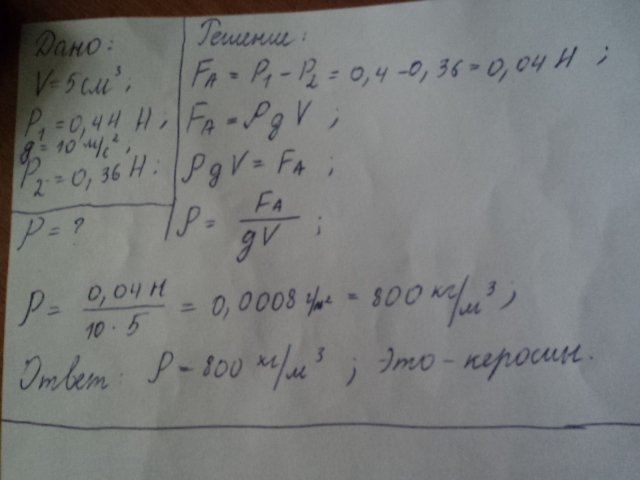 Дано:
V = 5 см³;
P₁ = 0,44 Н;
g = 10 м/с²;
P₂ = 0,36 Н;
ρ = ?
Решение:
F_A = P₁ - P₂ = 0,4 - 0,36 = 0,04 Н ;
F_A = ρ g V ;
ρ g V = F_A ;
ρ = F_A / gV ;
ρ = 0,04 Н / 10 · 5 = 0,0008 = 800 кг/м³ ;
Ответ: ρ = 800 кг/м³ ; Это - керосин.